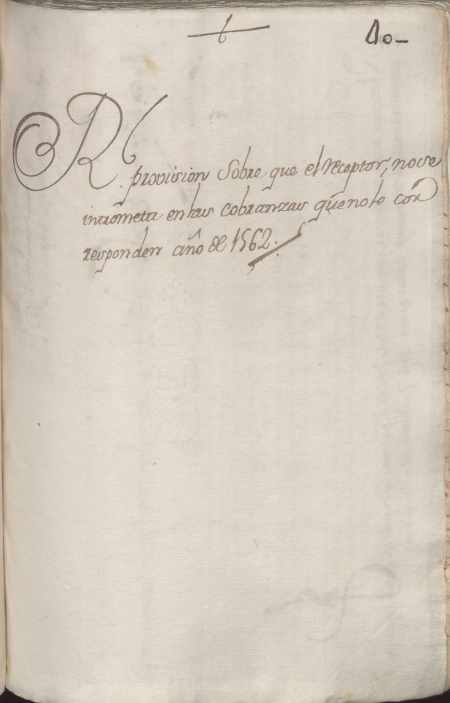 6 40-
Rˡ provision Sobre que el receptor, no se
intrometa en las Cobranzas q̃ no le Cor
responden año de 1562.